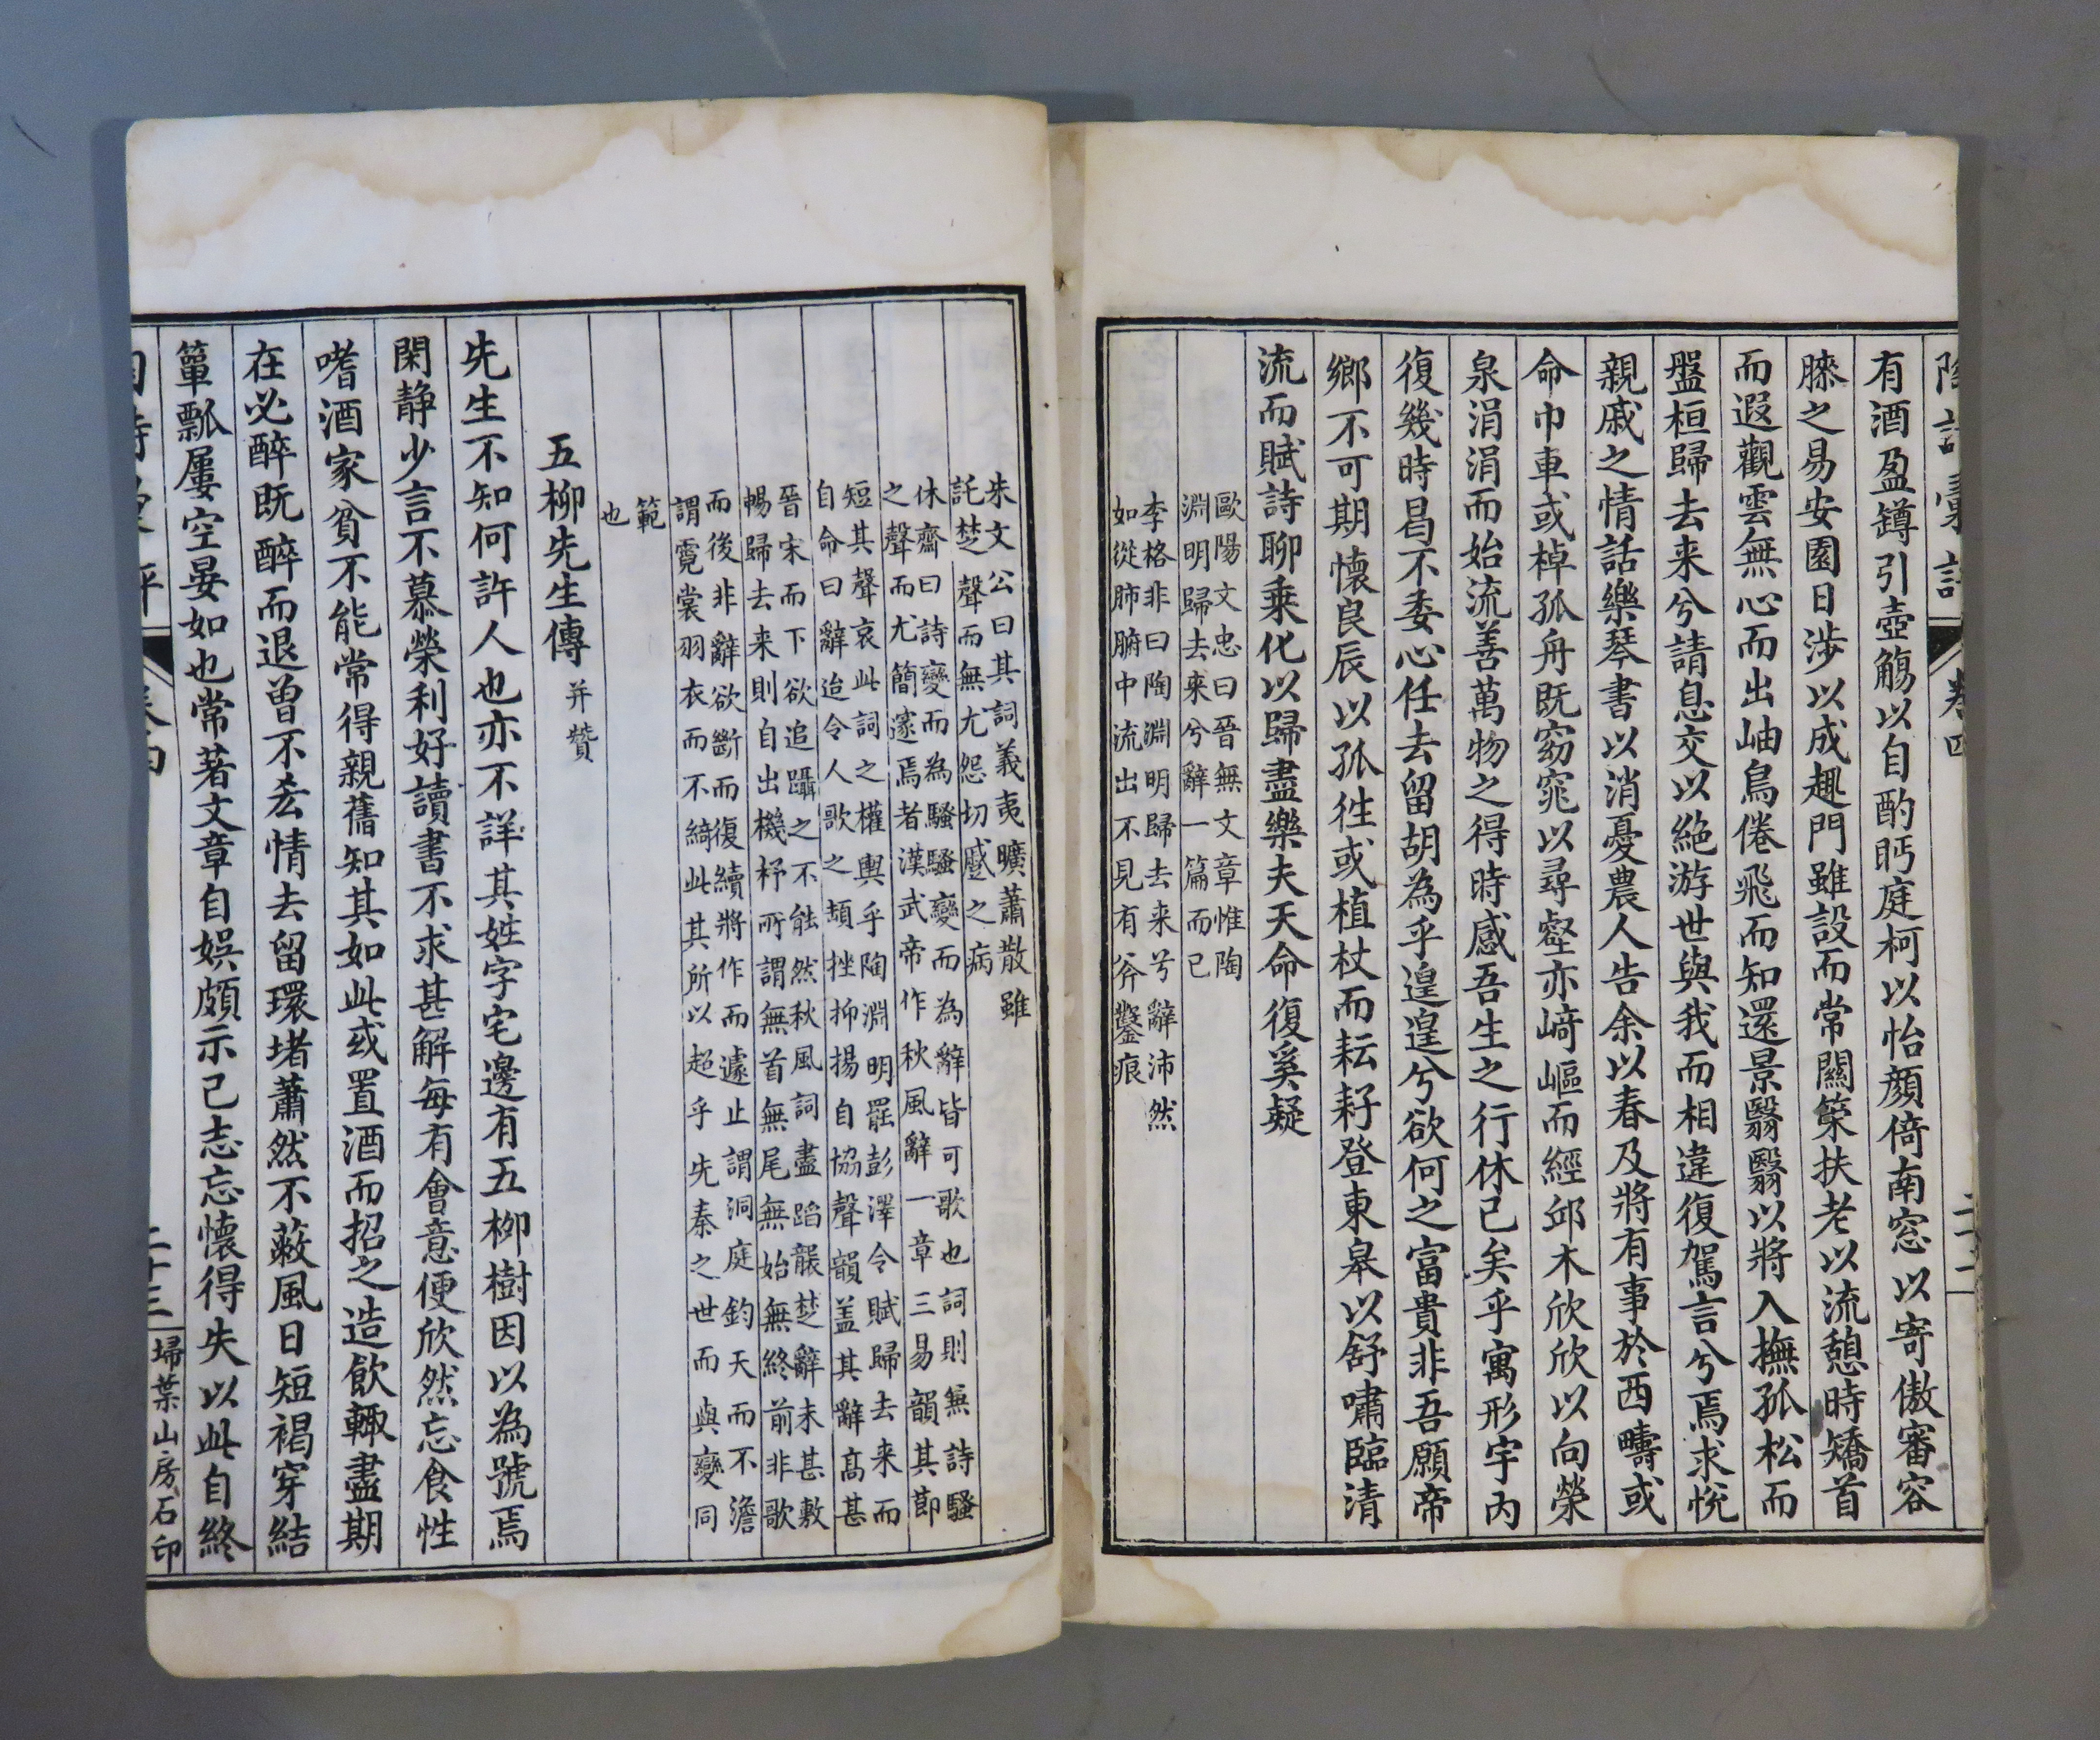 陶詩彙評 卷四 二十二
有酒盈罇引壺觴以自酌眄庭柯以怡顏倚南窓以寄傲審容
膝之易安園日涉以成趣門雖設而常關策扶老以流憩時矯首
而遐觀雲無心而出岫鳥倦飛而知還景翳翳以將入撫孤松而
盤桓歸去来兮請息交以絶游世與我而相違復駕言兮焉求悅
親戚之情話樂琴書以消憂農人告余以春及將有事於西疇或
命巾車或棹孤舟既窈窕以尋壑亦崎嶇而經邱木欣欣以向榮
泉涓涓而始流善萬物之得時感吾生之行休已矣乎寓形宇內
復幾時曷不委心任去留胡為乎遑遑兮欲何之富貴非吾願帝
鄉不可期懷良辰以孤徃或植杖而耘耔登東皋以舒嘯臨清
流而賦詩聊乗化以歸盡樂夫天命復奚疑
歐陽文忠曰晉無文章惟陶
淵明歸去來兮辭一篇而已
李格非曰陶淵明歸去来兮辭沛然
如從肺腑中流出不見有斧鑿痕
朱文公曰其詞義夷曠蕭散雖
託楚聲而無尤怨切蹙之病
休齋曰詩變而為騷騷變而為辭皆可歌也詞則兼詩騷
之聲而尤簡邃焉者漢武帝作秋風辭一章三易韻其節
短其聲哀此詞之權輿乎陶淵明罷彭澤令賦歸去来而
自命曰辭迨令人歌之頡挫抑揚自協聲韻盖其辭高甚
晉宋而下欲追躡之不能然秋風詞盡蹈襲楚辭未甚敷
暢歸去来則自出機杼所謂無首無尾無始無終前非歌
而後非辭欲斷而復續將作而遽止謂洞庭鈞天而不澹
謂霓裳羽衣而不綺此其所以超乎先秦之世而與變同
範
也
五柳先生傳 并贊
先生不知何許人也亦不詳其姓字宅邊有五柳樹因以為號焉
閑静少言不慕榮利好讀書不求甚解每有會意便欣然忘食性
嗜酒家貧不能常得親舊知其如此或置酒而招之造飲輒盡期
在必醉既醉而退曾不吝情去留環堵蕭然不蔽風日短褐穿結
簞瓢屢空晏如也常著文章自娛頗示己志忘懷得失以此自終
陶詩彙評 卷四 二十三 埽葉山房石印